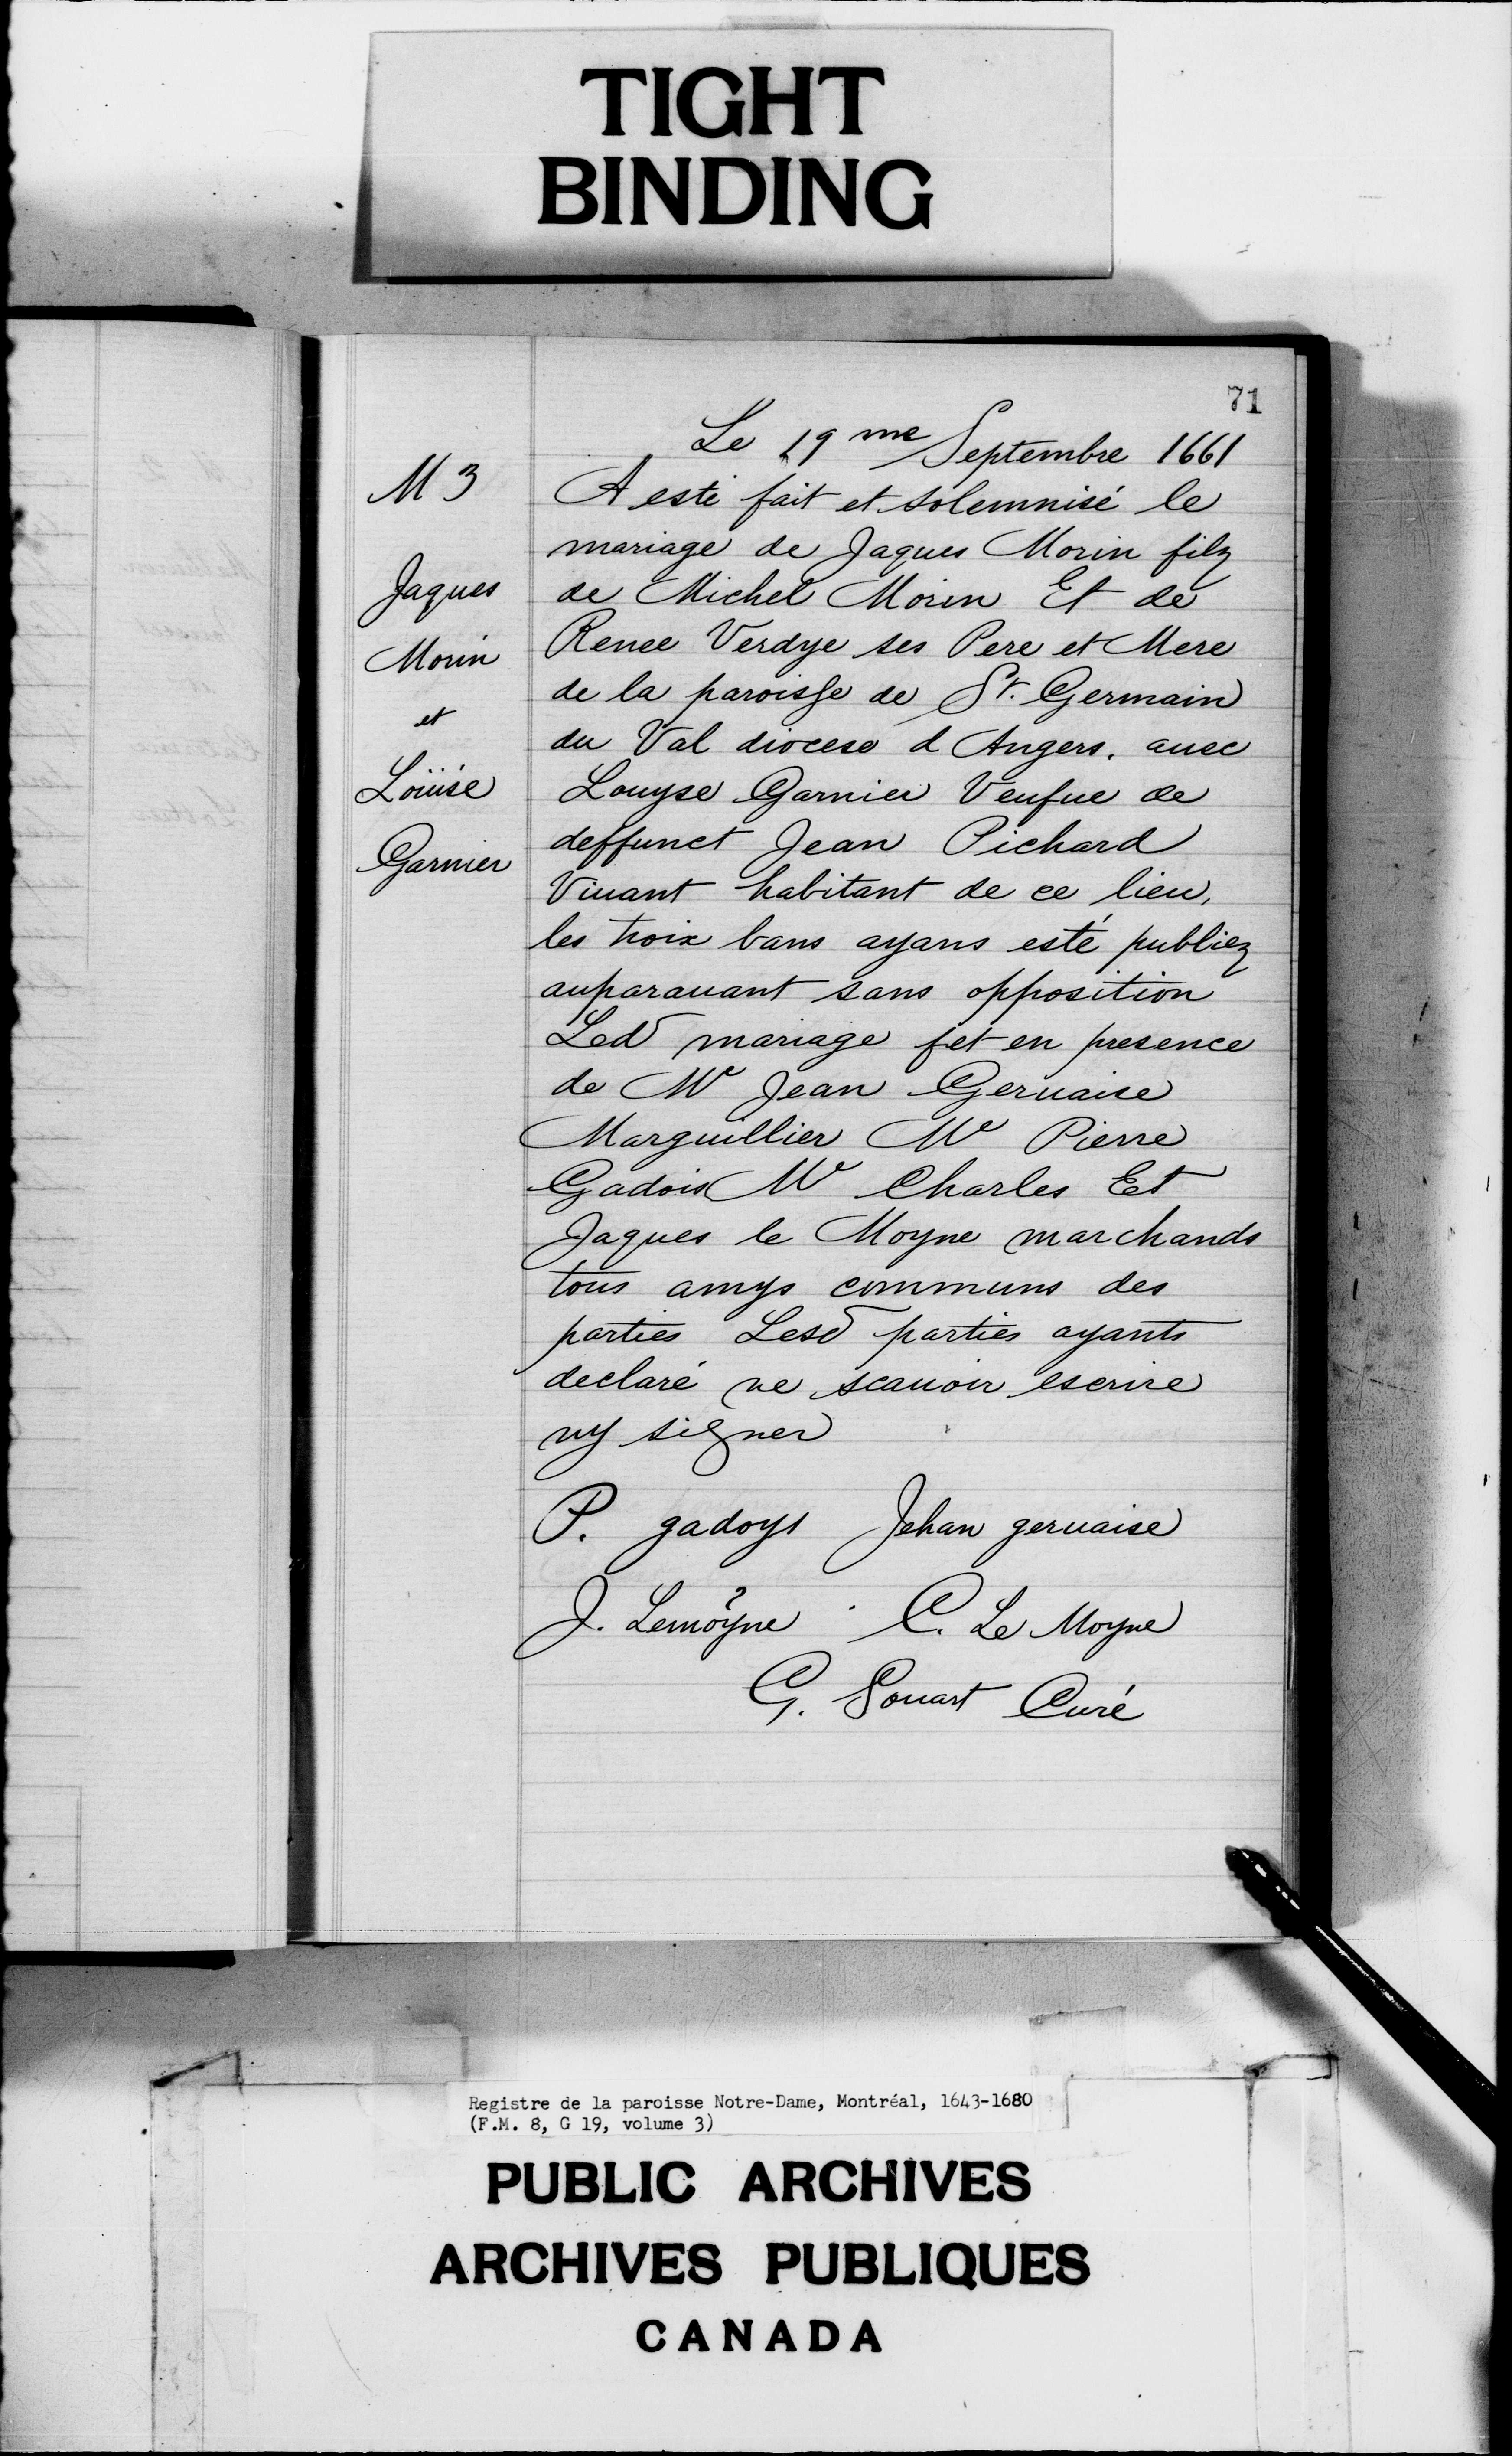 TIGHT
BINDING
71
Le 19 me Septembre 1661
M 3
Jaques
Morin
et
Loüise
Garnier
A esté fait et solemnisé le
mariage de Jaques Morin filz
de Michel Morin Et de
Renee Verdye ses Pere et Mere
de la paroisse de St. Germain
du Val diocese d Angers. auec
Louyse Garnier Veufue de
deffunct Jean Pichard
Viuant habitant de ce lieu,
les troix bans ayans esté publiez
auparauant sans opposition
Led mariage fet en presence
de Me Jean Geruaise
Marguillier Me Pierre
Gadois Me Charles Et
Jaques le Moyne marchands
tous amys communs des
parties Lesd parties ayants
declaré ne scauoir escrire
ny signer
P. gadoys Jehan geruaise
J. Lemoÿne C. Le Moyne
G. Souart Curé
Registre de la paroisse Notre-Dame, Montréal, 1643-1680
(F.M. 8, G 19, volume 3)
PUBLIC ARCHIVES
ARCHIVES PUBLIQUES
CANADA